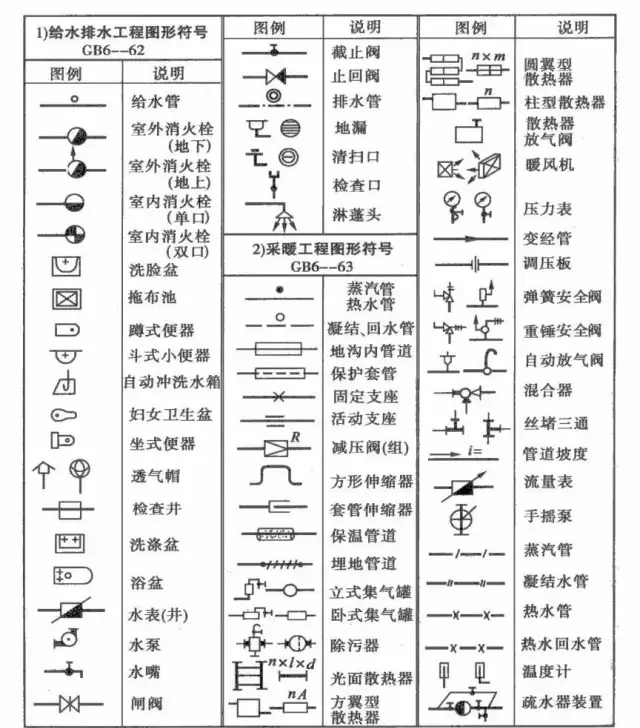 1)给水排水工程图形符号
GB6--62
图例 说明
给水管
室外消火栓
(地下)
室外消火栓
(地上)
室内消火栓
(单口)
室内消火栓
(双口)
洗脸盆
拖布池
蹲式便器
斗式小便器
自动冲洗水箱
妇女卫生盆
坐式便器
透气帽
检查井
洗涤盆
浴盆
水表(井)
水泵
水嘴
闸阀
图例 说明
截止阀
止回阀
排水管
地漏
清扫口
检查口
淋蓬头
2)采暖工程图形符号
GB6--63
蒸汽管
热水管
凝结、回水管
地沟内管道
保护套管
固定支座
活动支座
R 减压阀(组)
方形伸缩器
套管伸缩器
保温管道
埋地管道
立式集气罐
卧式集气罐
除污器
n×l×d 光面散热器
nA 方翼型
散热器
图例 说明
n×m 圆翼型
散热器
n 柱型散热器
散热器
放气阀
暖风机
压力表
变经管
调压板
弹簧安全阀
重锤安全阀
自动放气阀
混合器
丝堵三通
i= 管道坡度
流量表
手摇泵
蒸汽管
凝结水管
热水管
热水回水管
温度计
疏水器装置